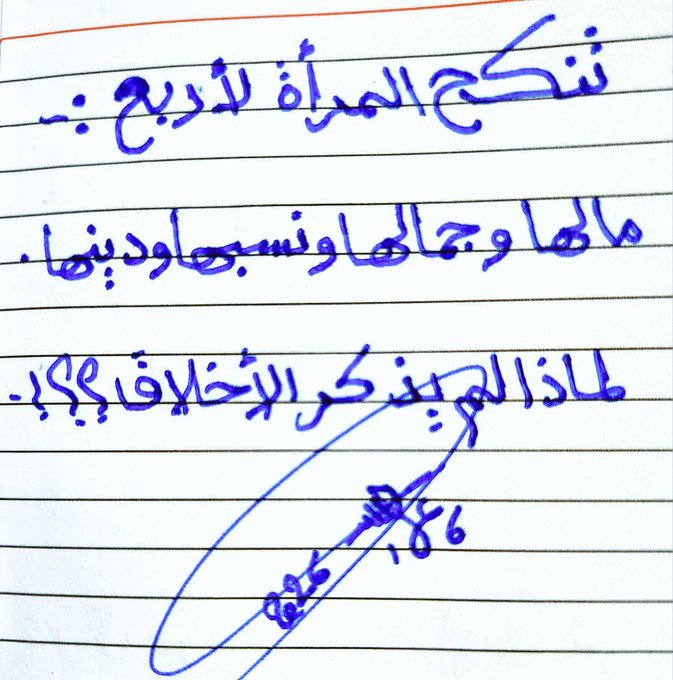 تنكح المرأة لأربع :-
مالها وجمالها ونسبها ودينها .
لماذا لم يذكر الأخلاق؟؟!.